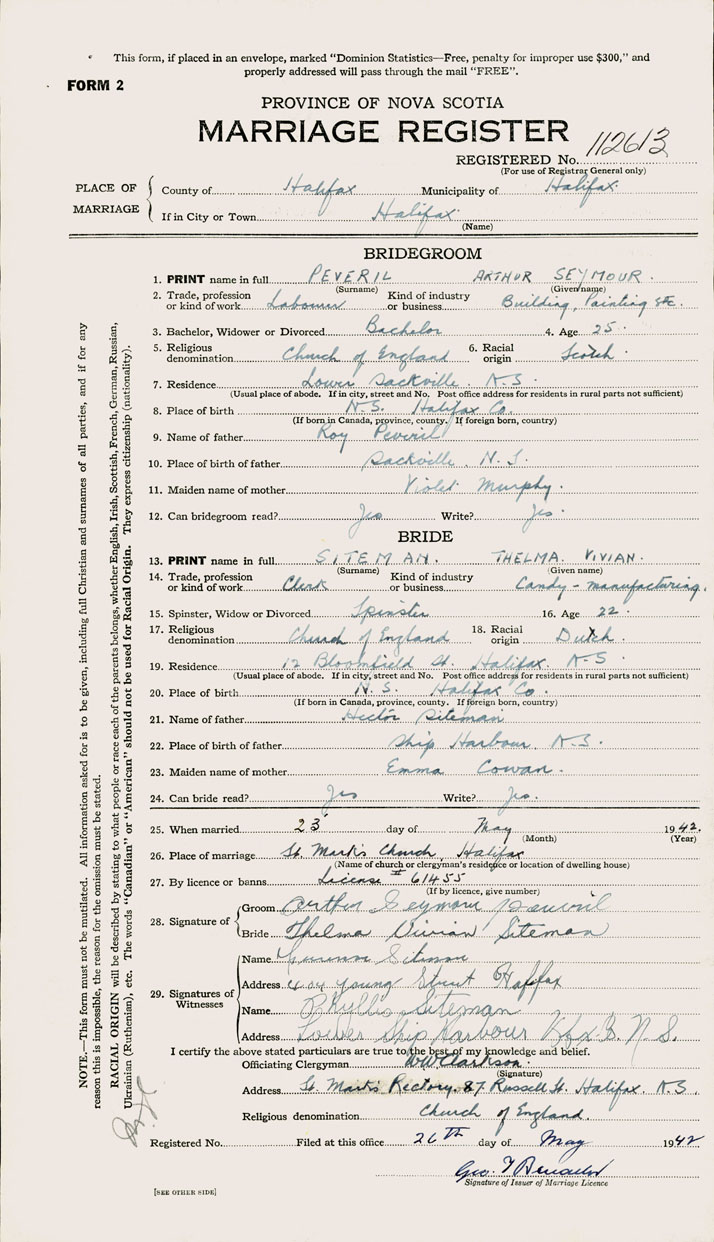 This form, if placed in an envelope, marked "Dominion Statistics—Free, penalty for improper use $300," and
properly addressed will pass through the mail "FREE".
FORM 2
PROVINCE OF NOVA SCOTIA
MARRIAGE REGISTER
REGISTERED No. 112613
(For use of Registrar General only)
PLACE OF MARRIAGE
County of Halifax Municipality of Halifax
If in City or Town Halifax
(Name)
BRIDEGROOM
1. PRINT name in full PEVERIL ARTHUR SEYMOUR.
(Surname) (Given name)
2. Trade, profession or kind of work Labourer Kind of industry or business Building, Painting etc.
3. Bachelor, Widower or Divorced Bachelor 4. Age 25
5. Religious denomination Church of England 6. Racial origin Scotch
7. Residence Lower Sackville. N.S.
(Usual place of abode. If in city, street and No. Post office address for residents in rural parts not sufficient)
8. Place of birth N.S. Halifax Co.
(If born in Canada, province, county. If foreign born, country)
9. Name of father Roy Peveril
10. Place of birth of father Sackville. N.S.
11. Maiden name of mother Violet Murphy.
12. Can bridegroom read? Yes Write? Yes.
BRIDE
13. PRINT name in full SITEMAN. THELMA. VIVIAN.
(Surname) (Given name)
14. Trade, profession or kind of work Clerk Kind of industry or business Candy - manufacturing.
15. Spinster, Widow or Divorced Spinster 16. Age 22
17. Religious denomination Church of England 18. Racial origin Dutch.
19. Residence 12 Bloomfield St. Halifax. N.S
(Usual place of abode. If in city, street and No. Post office address for residents in rural parts not sufficient)
20. Place of birth N.S. Halifax Co.
(If born in Canada, province, county. If foreign born, country)
21. Name of father Hector Siteman
22. Place of birth of father Ship Harbour. N.S.
23. Maiden name of mother Emma Cowan.
24. Can bride read? Yes Write? Yes.
25. When married 23 day of May 1942.
(Month) (Year)
26. Place of marriage St. Mark's Church, Halifax
(Name of church or clergyman's residence or location of dwelling house)
27. By licence or banns License # 61455
(If by licence, give number)
28. Signature of
Groom Arthur Seymour Peveril
Bride Thelma Vivian Siteman
29. Signatures of Witnesses
Name Siteman
Address Young Street Halifax
Name Phyllis Siteman
Address Lower Ship Harbour Hfx. N.S.
I certify the above stated particulars are true to the best of my knowledge and belief.
Officiating Clergyman WW Clarkson.
(Signature)
Address St. Mark's Rectory. 87 Russell St. Halifax. N.S.
Religious denomination Church of England.
Registered No. Filed at this office 26th day of May 1942
Geo. T
Signature of Issuer of Marriage Licence
[SEE OTHER SIDE]
NOTE.—This form must not be mutilated. All information asked for is to be given, including full Christian and surnames of all parties, and if for any
reason this is impossible, the reason for the omission must be stated.
RACIAL ORIGIN will be described by stating to what people or race each of the parents belongs, whether English, Irish, Scottish, French, German, Russian,
Ukrainian (Ruthenian), etc. The words "Canadian" or "American" should not be used for Racial Origin. They express citizenship (nationality).